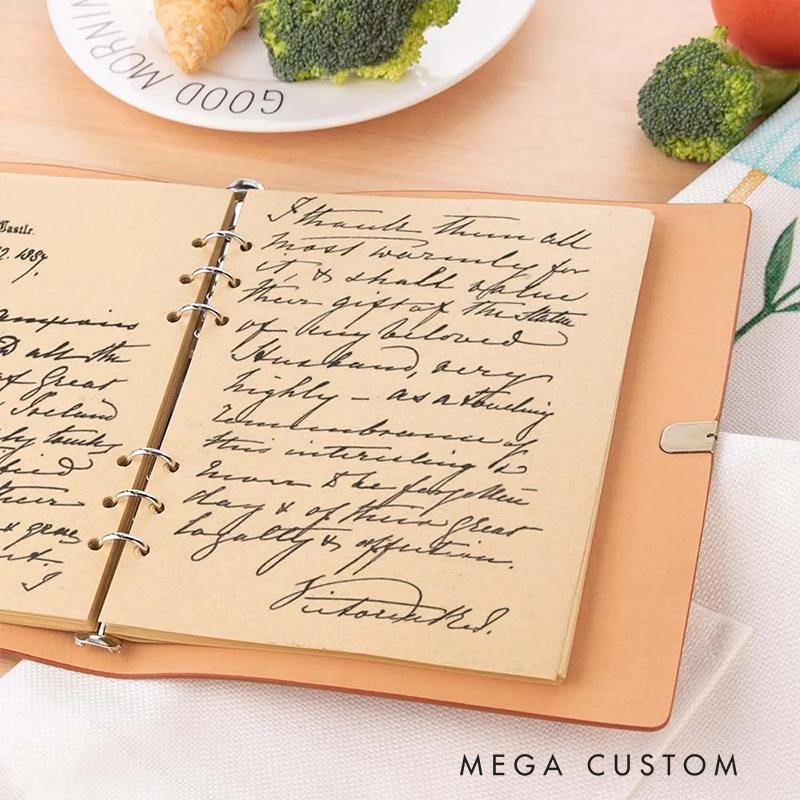 GOOD MORNIN
Castle.
1887.
all the
of Great
Ireland
their
I
I thank them all
most warmly for
it, & shall value
their gift of the Statue
of my beloved
Husband, very
highly – as a touching
remembrance of
this interesting &
never to be forgotten
day & of their great
loyalty & affection.
Victoria R&I.
MEGA CUSTOM